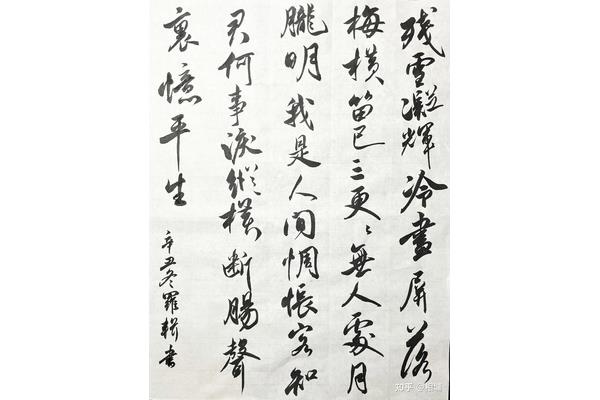 残雪凝輝冷畫屏落
梅横笛已三更々無人處月
朧明我是人间惆悵客知
君何事淚縱横断腸聲
裏憶平生
辛丑冬羅輯書
知乎